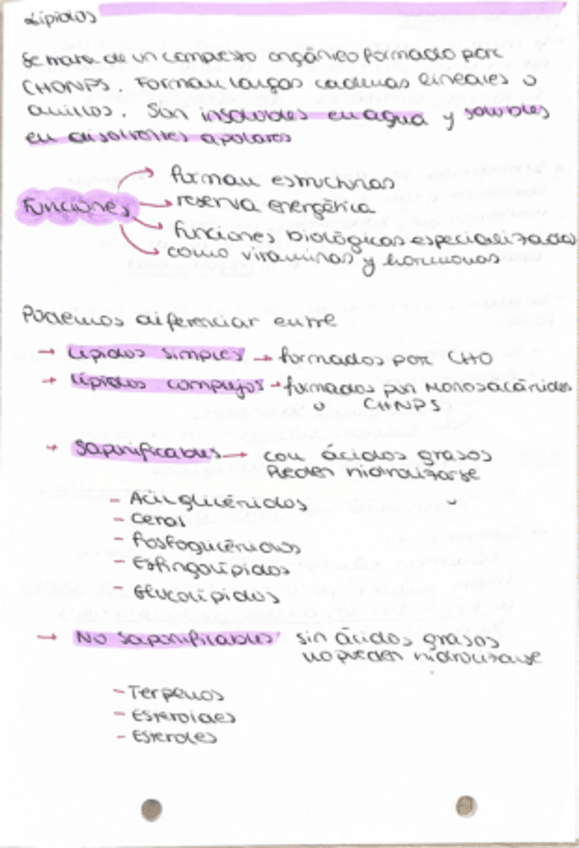 Lípidos
Se trata de un compuesto orgánico formado por
CHONPS. Forman largas cadenas lineales o
anillos. Son insolubles en agua y solubles
en disolventes apolares
Funciones
→ forman estructuras
→ reserva energética
→ funciones biológicas especializadas
como vitaminas y hormonas
Podemos diferenciar entre
→ Lípidos simples → formados por CHO
→ Lípidos complejos → formados por Monosacáridos
o CHNPS
→ Saponificables → con ácidos grasos
Pueden hidrolizarse
- Acilglicéridos
- Ceras
- Fosfoglicéridos
- Esfingolípidos
- Glucolípidos
→ No saponificables sin ácidos grasos
no pueden hidrolizarse
- Terpenos
- Esteroides
- Esteroles